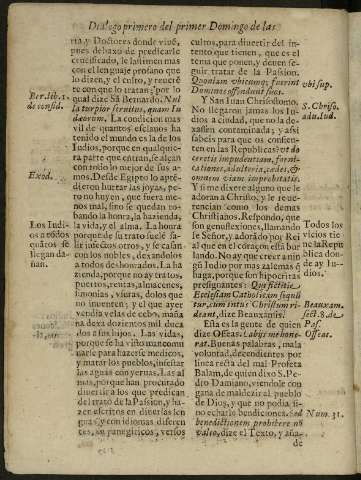 Dialogo primero del primer Domingo de las
ria, y Doctores donde viuē,
pues debaxo de predicarle
crucificado, le lastiman mas
con el lenguaje profano que
lo dizen, y el culto, y reuerē
te con que lo tratan; por lo
qual dize Sā Bernardo. Nul
la turpior seruitus, quam Iu
dæorum. La condicion mas
vil de quantos esclauos ha
tenido el mundo es la de los
Indios, porque en qualquie-
ra parte que entran, se alçan
con todo lo mejor de sus a-
mos. Desde Egipto lo apren-
dieron hurtar las joyas, pe-
ro no huyen, que fuera me-
nos mal, sino se quedan ro-
bando la honra, la hazienda,
la vida, y el alma. La honra
porque de su trato sucio sa-
lir infectos otros, y se casan
con los nobles, dexandolos
a todos de honrados. La ha
zienda, porque no ay tratos,
puertos, rentas, almacenes,
simonias, vsuras, dolos que
no inuenten; y el que ayer
vendia velas de cebo, maña
na dexa docientos mil duca
dos a los hijos. Las vidas,
porque se ha visto mancomū
narle para hazerse medicos,
y matar los pueblos, infestar
las aguas con yeruas. Las al
mas, porque han procurado
diuertir a los que predican
del trato de la Passion, y ha-
zer escritos en diuersas len
guas, y con idiomas diferen
tes, sus panegiricos, versos
Ber. lib. 1.
de consid.
Exod.
Los Indi
os a todos
quātos se
llegan da-
ñan.
cultos, para diuertir del in-
tento que tienen, que es el
tema que ponen, y deuen se-
guir tratar de la Passion.
Quoniam vbicumq; fuerint
Dominos offendunt suos.
Y San Iuan Chrisostomo.
No llegaron jamas los In-
dios a ciudad, que no la de-
xassen contaminada; y assi
sabeis para que os consien-
ten en las Republicas? vt do
ceretis impudentiam, forni-
cationes, adulteria, cædes, &
omnem viam improbitatis.
Y si me dixere alguno que le
adoran a Christo, y le reue-
rencian como los demas
Christianos. Respondo, que
son genuflexiones, llamando
le Señor, y adorado por Rei
al que en el coraçon está bur
lando. No ay que creer a nin
gū Iudio por mas zalemas q̄
haga, porque son hipocritas
presignantes: Qui fictitie
Ecclesiam Catholicam sequū
tur, cum intus Christum ri-
deant, dize Beauxamis.
Esta es cendiente de quien
dize Osseas: Labijs me hono-
rat. Buenas palabras, mala
voluntad, decendientes por
linea recta del mal Profeta
Balam, de quien dixo S. Pe-
dro Damiano, viendole con
gana de maldezir al pueblo
de Dios, y que no podia si-
no echarle bendiciones. Sed
benedictionem prohibere no
valeo, dize el Texto, y aña-
de
vbi sup.
S. Chriso.
adu. Iud.
Todos los
vicios tie
ne la Repu
blica don-
de ay Iu-
dios.
Beauxam.
sect. 8. de
Pas.
Osseas.
Num. 31.